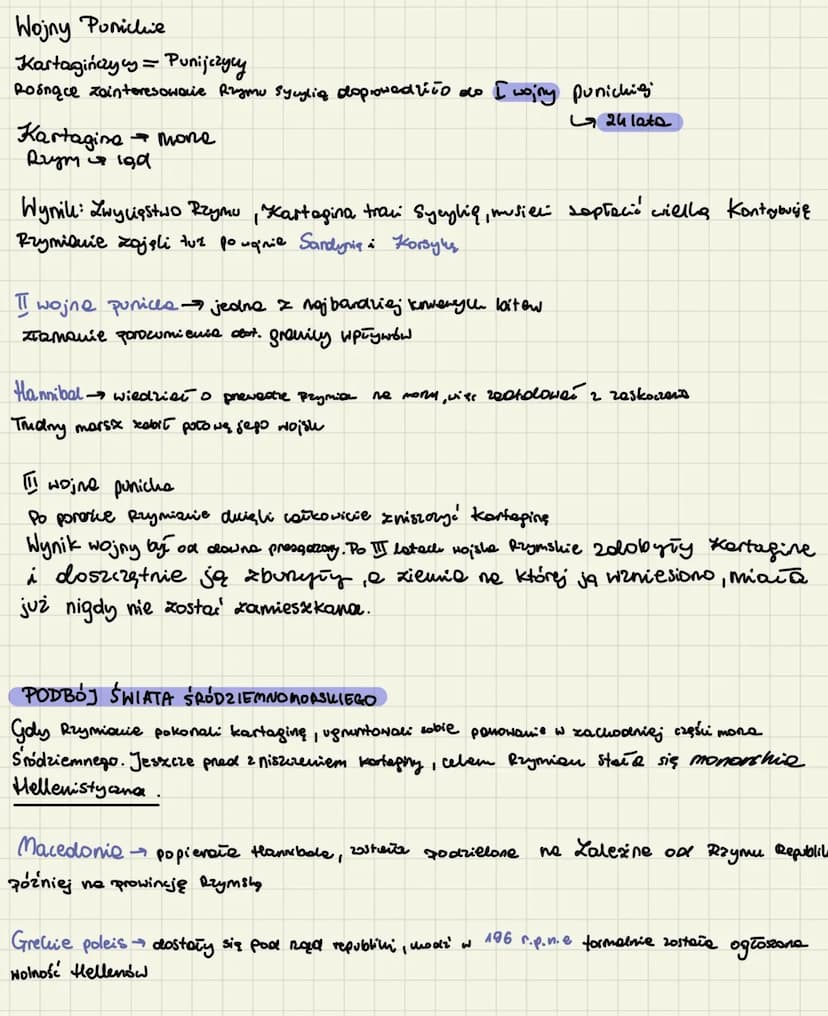 Wojny Punickie
Kartagińczycy = Punijczycy
Rosnące zainteresowanie Rzymu Sycylią doprowadziło do I wojny punickiej
↳ 24 lata
Kartagina → morze
Rzym → ląd
Wynik: Zwycięstwo Rzymu, Kartagina traci Sycylię, musieli zapłacić wielką kontrybucję
Rzymianie zajęli tuż po wojnie Sardynię i Korsykę
II wojna punicka → jedna z najbardziej krwawych bitew
złamanie porozumienia dot. granicy wpływów
Hannibal → wiedział o przewadze Rzymian na morzu, więc zaatakował z zaskoczenia
Trudny marsz zabił połowę jego wojsk
III wojna punicka
Po porażce Rzymianie chcieli całkowicie zniszczyć Kartaginę
Wynik wojny był od dawna przesądzony. Po III latach wojska Rzymskie zdobyły Kartagine
i doszczętnie ją zburzyły, a ziemia na której ją wzniesiono, miała
już nigdy nie zostać zamieszkana.
PODBÓJ ŚWIATA ŚRÓDZIEMNOMORSKIEGO
Gdy Rzymianie pokonali kartaginę, ugruntowali sobie panowanie w zachodniej części morza
Śródziemnego. Jeszcze przed zniszczeniem kartaginy, celem Rzymian stała się monarchia
Hellenistyczna.
Macedonia → popierała Hannibala, została podzielona na zależne od Rzymu Republik
później na prowincję Rzymską
Greckie poleis → dostały się pod rząd republiki, choć w 196 r.p.n.e formalnie została ogłoszona
wolność Hellenów